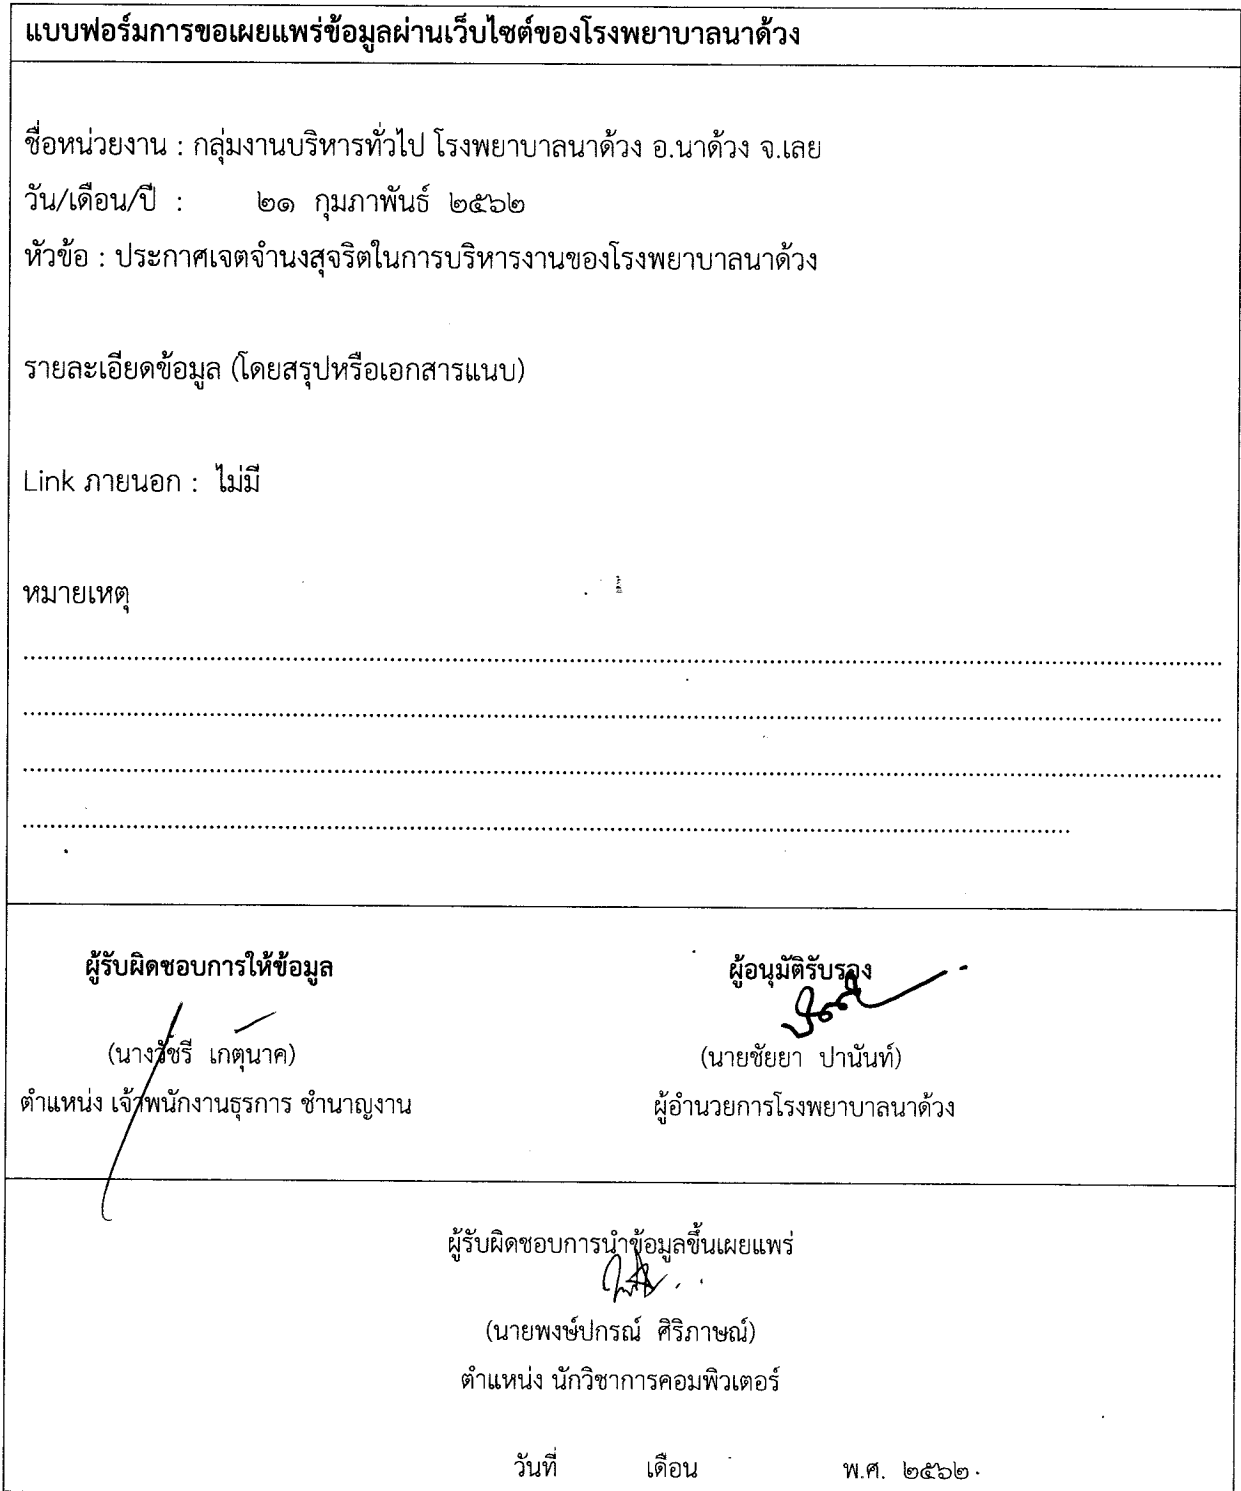 แบบฟอร์มการขอเผยแพร่ข้อมูลผ่านเว็บไซต์ของโรงพยาบาลนาด้วง
ชื่อหน่วยงาน : กลุ่มงานบริหารทั่วไป โรงพยาบาลนาด้วง อ.นาด้วง จ.เลย
วัน/เดือน/ปี : ๒๑ กุมภาพันธ์ ๒๕๖๒
หัวข้อ : ประกาศเจตจำนงสุจริตในการบริหารงานของโรงพยาบาลนาด้วง
รายละเอียดข้อมูล (โดยสรุปหรือเอกสารแนบ)
Link ภายนอก : ไม่มี
หมายเหตุ
ผู้รับผิดชอบการให้ข้อมูล ผู้อนุมัติรับรอง
(นางวัชรี เกตุนาค) (นายชัยยา ปานันท์)
ตำแหน่ง เจ้าพนักงานธุรการ ชำนาญงาน ผู้อำนวยการโรงพยาบาลนาด้วง
ผู้รับผิดชอบการนำข้อมูลขึ้นเผยแพร่
(นายพงษ์ปกรณ์ ศิริภาษณ์)
ตำแหน่ง นักวิชาการคอมพิวเตอร์
วันที่ เดือน พ.ศ. ๒๕๖๒